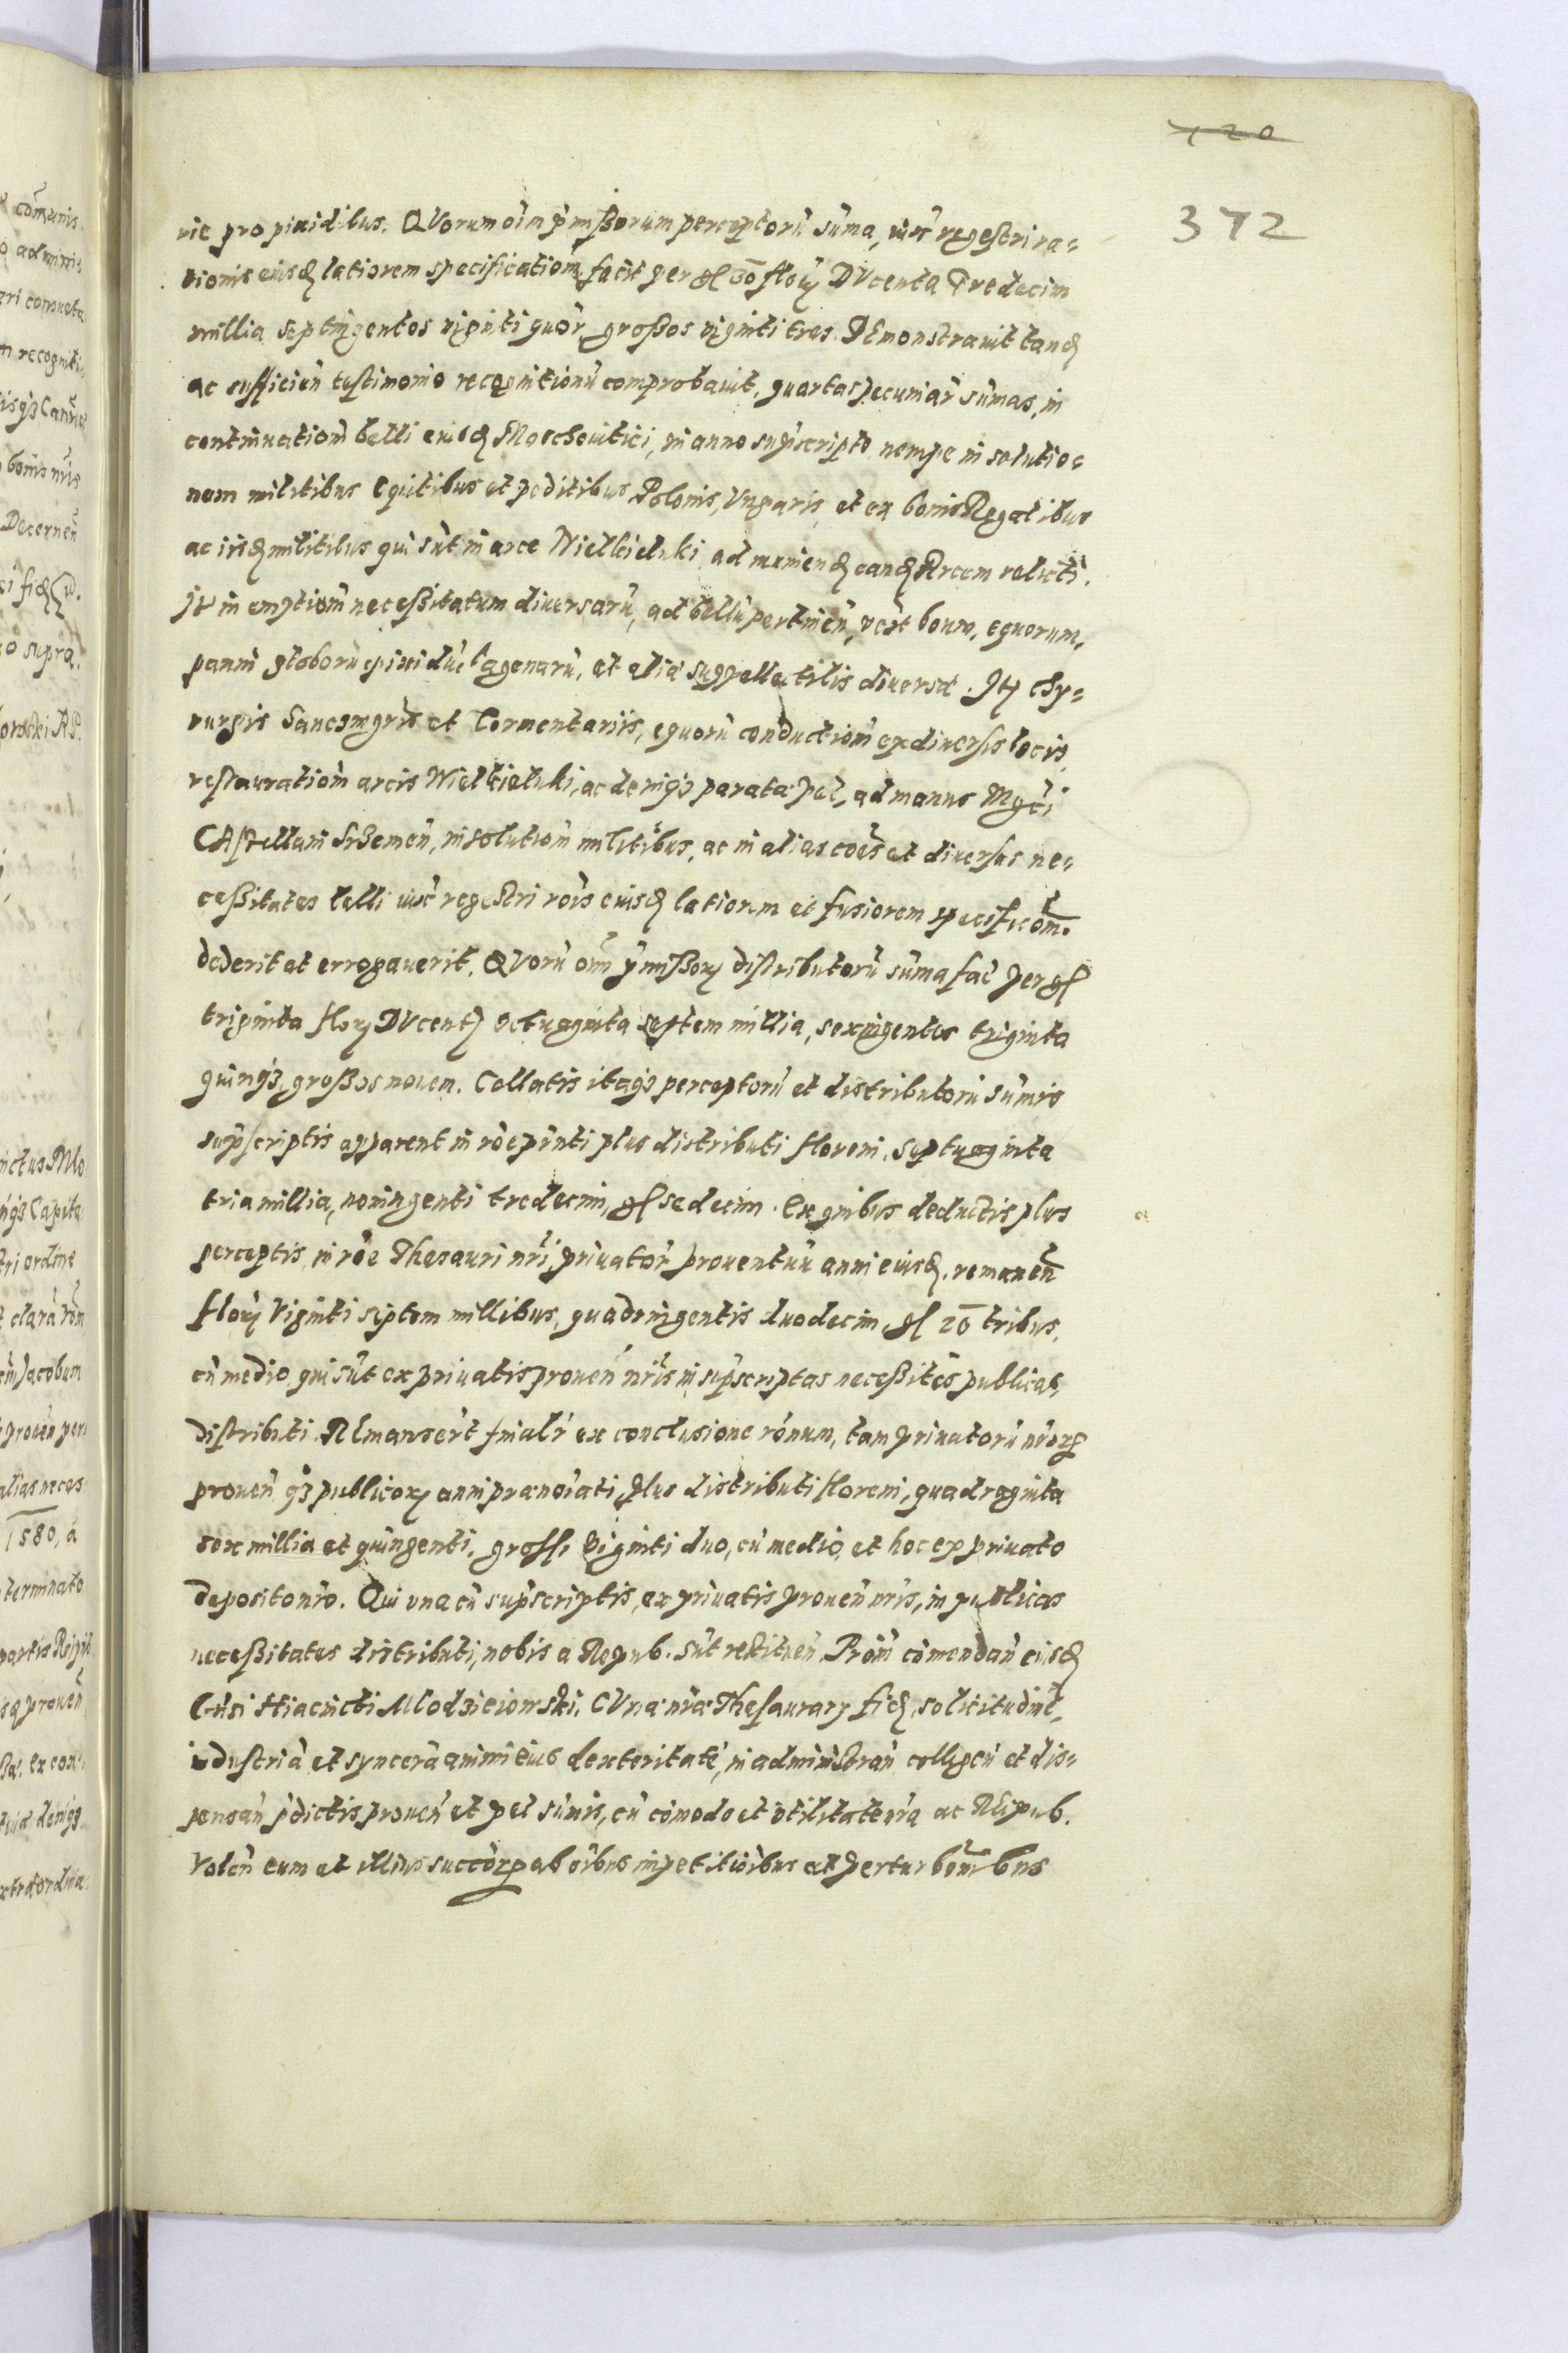 120
372
rie pro pixidibus. QVorum oīm p̄missorum perceptorū sūma, iux̄ regestri ra=
tionis eiusd latiorem specificatiom̄ facit per gl 30 floꝝ DVcenta Tredecim
millia septingentos viginti quor̄, grossos viginti tres. DEmonstrauit tand
ac sufficien̄ testimonio recognitionū comprobauit, quartas pecuniar̄ sūmas, in
continuatiom̄ belli eiusd Moschouitici, in anno sup̄scripto nempe in solutio=
nem militibus equitibus et peditibus Polonis, Vngaris, et ex bonis Regalibus
ac iisd militibus qui sūt in arce Wielkieluki ad muniend eand Arcem relicti.
It in emptiom̄ necessitatum diuersarū, ad bellū pertinen̄, boum, equorum,
panni globorū pixidū lagenarū, et alia suppellectilis diuersa. Itꝫ chy=
rurgis et Tormentariis, equorū conductiom̄ ex diuersis locis,
restauratiom̄ arcis Wielkieluki, ac deniqꝫ parata pec, ad manus Mgci
CAstellani Srzemen̄, in solutiom̄ militibus, ac in alias coēs et diuersas ne=
cessitates belli iux̄ regestri rōis eiusd latiorem et fusiorem specificōm̄.
dederit et errogauerit. QVorū oīm p̄missoꝝ distributorū sūma fac per gl
triginta floꝝ DVcentꝫ Octuaginta septem millia, sexingentos triginta
quinqꝫ, grossos nouen. Collatis itaqꝫ perceptorū et distributorū sūmis
sup̄scriptis apparent in rōe p̄nti plus distributi floreni, septuaginta
tria millia, noningenti tredecim, gl sedecim. Ex quibus deductis plus
perceptis, in rōe Thesauri nr̄i, priuator̄ prouentuū anni eiusd. remanen̄
floꝝ Viginti septem millibus, quadringentis duodecim, gl 20 tribus,
cū medio, qui sūt ex priuatis prouen̄ nr̄is in sup̄scriptas necessitēs publicas,
distributi. REmanserūt finalr̄ ex conclusione rōnum, tam priuatorū nr̄orꝫ
prouen̄ qꝫ publicoꝝ anni prænoīati, plus distributi floreni, quadraginta
sex millia et quingenti, grossi Viginti duo, cū medio, et hoc ex priuato
deposito nr̄o. Qui una cū sup̄scriptis, ex priuatis prouen̄ nr̄is, in publicas
necessitates distributi, nobis a Repub. sūt restituen̄. Proīn cōmendan̄ eiusd
Grūsi Hiacincti Mlodzieiowski, CVriæ nr̄æ Thesaurarꝫ fid, solicitudine,
industria et syncera animi eius dexteritatē, in administran̄ colligen̄ et dis=
pensan̄ p̄dictis prouen̄ et pec sūmis, cū cōmodo et vtilitate nr̄a ac REipub.
Volen̄ eum et illius succōrꝫ ab oībus impetitiōibus et perturbōnibus